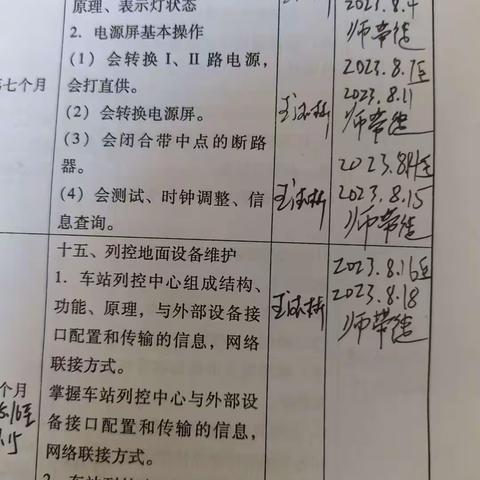 原理、表示灯状态
2．电源屏基本操作
（1）会转换 I、II 路电源，
会打直供。
（2）会转换电源屏。
（3）会闭合带中点的断路
器。
（4）会测试、时钟调整、信
息查询。
七个月
2023.8.4
师带徒
2023.8.7至
2023.8.11
师带徒
2023.8.14至
2023.8.15
师带徒
十五、列控地面设备维护
1．车站列控中心组成结构、
功能、原理，与外部设备接
口配置和传输的信息，网络
联接方式。
掌握车站列控中心与外部设
备接口配置和传输的信息，
网络联接方式。
个月
2023.8.16至
2023.8.18
师带徒